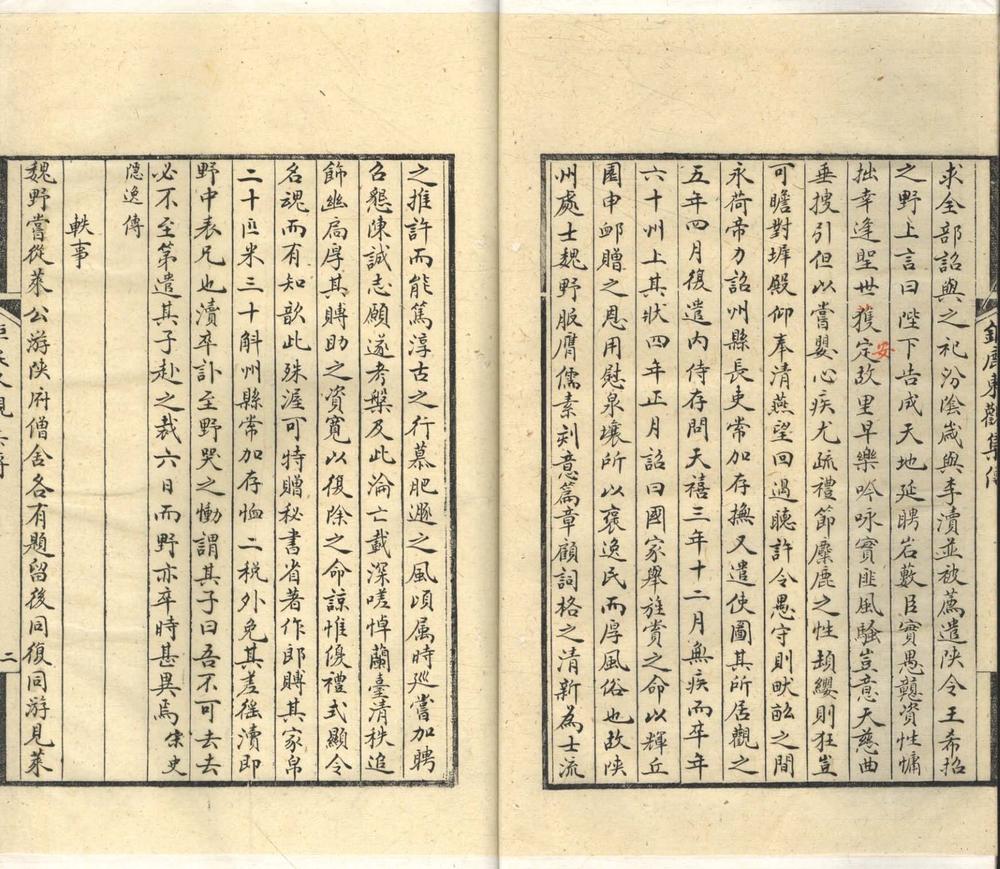 求全部詔與之祀汾陰歲與李瀆並被薦遣陝令王希招
之野上言曰陛下告成天地延聘岩藪臣實愚戇資性慵
拙幸逢聖世獲定故里早樂吟咏實匪風騷豈意天慈曲
安
垂搜引但以嘗嬰心疾尤疏禮節麋鹿之性頓纓則狂豈
可瞻對墀殿仰奉清燕望回過聽許令愚守則畎畝之間
永荷帝力詔州縣長吏常加存撫又遣使圖其所居觀之
五年四月復遣内侍存問天禧三年十二月無疾而卒年
六十州上其狀四年正月詔曰國家舉旌賞之命以輝丘
園申卹贈之恩用慰泉壤所以襃逸民而厚風俗也故陝
州處士魏野服膺儒素刻意篇章顧詞格之清新為士流
之推許而能篤淳古之行慕肥遯之風頃属時廵嘗加聘
召懇陳誠志願遂考槃及此淪亡載深嗟悼蘭臺清秩追
飾幽扃厚其賻助之資寬以復除之命諒惟優禮式顯令
名魂而有知歆此殊渥可特贈秘書省著作郎賻其家帛
二十匹米三十斛州縣常加存恤二税外免其差徭瀆即
野中表兄也瀆卒訃至野哭之慟謂其子曰吾不可去去
必不至第遣其子赴之裁六日而野亦卒時甚異焉宋史
隱逸傳
軼事
魏野嘗從萊公游陝府僧舍各有題留後同復同游見萊
二